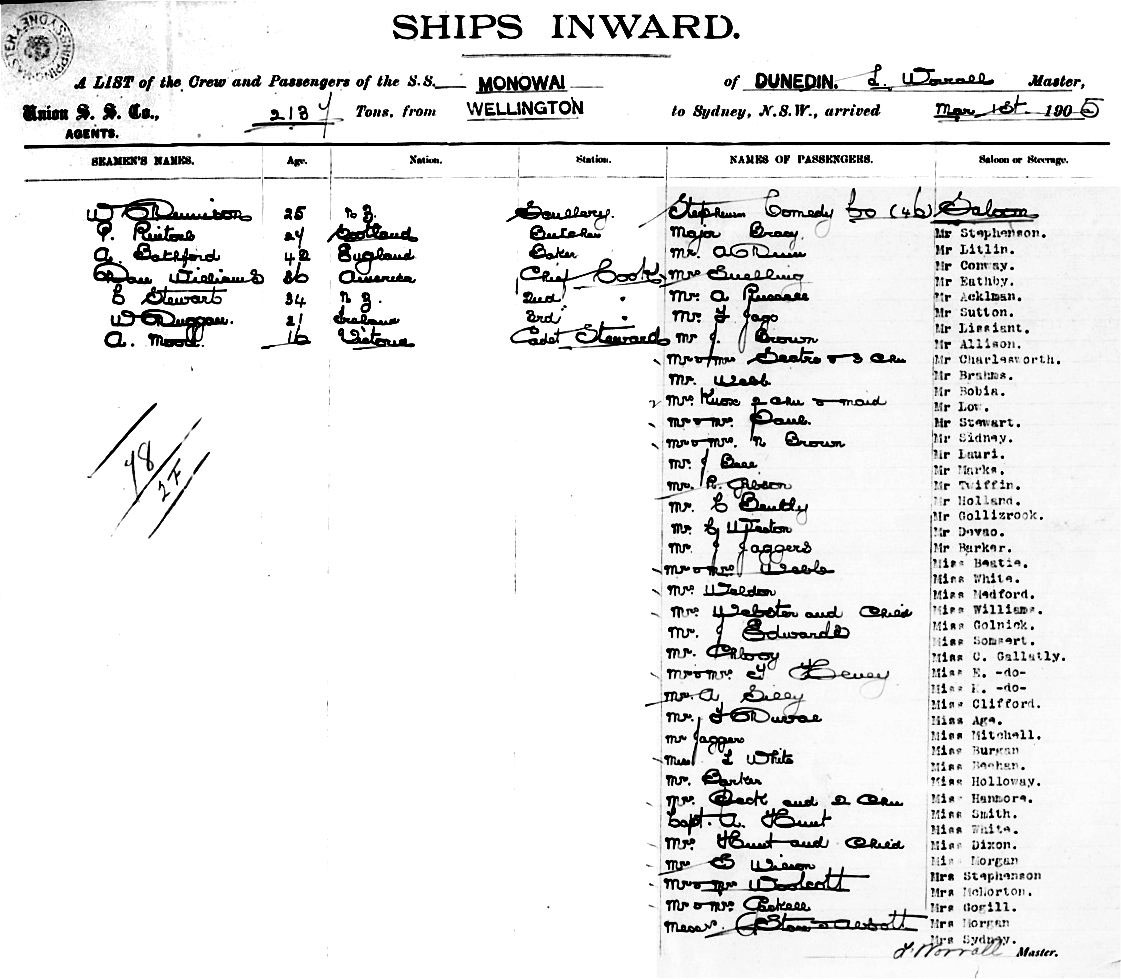 SHIPS INWARD.
A LIST of the Crew and Passengers of the S.S. MONOWAI of DUNEDIN. L. Worrall Master,
Union S. S. Co., 2137 Tons, from WELLINGTON to Sydney, N.S.W., arrived Mar 1st 1905
AGENTS.
SEAMEN'S NAMES. Age. Nation. Station. NAMES OF PASSENGERS. Saloon or Steerage.
W 25 N Z. Scullery.
P. 24 Scotland Butcher
A. 42 England Baker
Dan Williams 36 America Chief Cook
C Stewart 34 N Z. 2nd "
W Duggan. 21 Ireland 3rd "
A. Moore. 16 Victoria Cadet Steward
48
27
Stephenson Comedy Co (46) Saloon
Major Bracy
Mr. A Dunn
Mrs Snelling
Mr. A Russell
Mr. F Jago
Mr J. Brown
Mr & Mrs & 3 Chn
Mr. Webb
Mrs. Knox 2 Chn & maid
Mr & Mrs. Paul.
Mr & Mrs. N Brown
Mr. J
Mr. R. Gibson
Mr. C Bently
Mr. C Weston
Mr. J Jaggers
Mr & Mrs Webb
Mrs Weldon
Mrs. Webster and Child
Mr. J Edwards
Mr.
Mr & Mrs. F
Mr. A
Mr. F
Mr Jaggers
Miss L White
Mr. Barker
Mrs. and 2 Chn
Capt. A. Hunt
Mrs. Hunt and Child
Mr E Wilson
Mr & Mrs Woolcott
Mr & Mrs.
Messrs. & Abbott
Mr Stephenson.
Mr Litlin.
Mr Conway.
Mr Eathby.
Mr Acklman.
Mr Sutton.
Mr Lissiant.
Mr Allison.
Mr Charlesworth.
Mr Brahms.
Mr Bobia.
Mr Low.
Mr Stewart.
Mr Sidney.
Mr Lauri.
Mr Marks.
Mr Twiffin.
Mr Holland.
Mr Gollizrook.
Mr Devao.
Mr Barker.
Miss Beatie.
Miss White.
Miss Medford.
Miss Williams.
Miss Golnick.
Miss Somsert.
Miss C. Gallatly.
Miss E. -do-
Miss -do-
Miss Clifford.
Miss Age.
Miss Mitchell.
Miss Burgan
Miss Beehan.
Miss Holloway.
Miss Hanmore.
Miss Smith.
Miss White.
Miss Dixon.
Miss Morgan
Mrs Stephenson
Mrs McHorton.
Mrs Gogill.
Mrs Morgan
Mrs Sydney.
L Worrall Master.